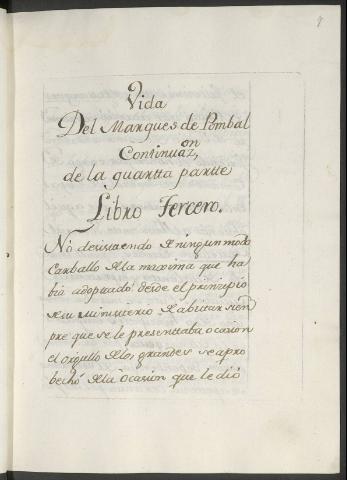 Vida
Del Marques de Pombal
Continuaz.on
de la quartta partte
Libro Tercero.
No desistiendo de ningun modo
Carballo de la maxima que ha
bia adoptado desde el prinzipio
de su Ministerio de abatir siem
pre que se le presenttaba ocasion
el orgullo de los grandes se apro
bechó de la ocasion que le dió